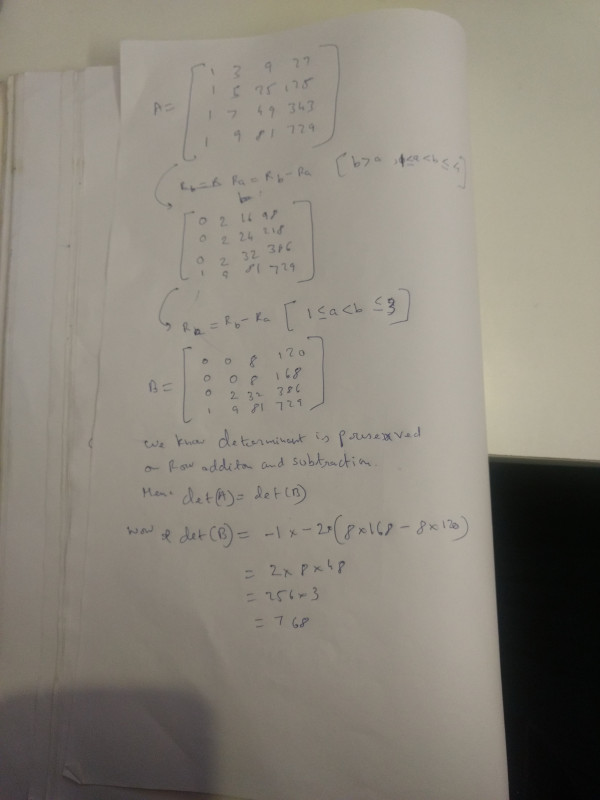 A = [ 1 3 9 27
1 5 25 125
1 7 49 343
1 9 81 729 ]
Ra = Rb - Ra [ b > a, 1 ≤ a < b ≤ 4 ]
[ 0 2 16 98
0 2 24 218
0 2 32 386
1 9 81 729 ]
Ra = Rb - Ra [ 1 ≤ a < b ≤ 3 ]
B = [ 0 0 8 120
0 0 8 168
0 2 32 386
1 9 81 729 ]
we know determinant is preserved
on Row additon and subtraction.
Hence det(A) = det(B)
Now det(B) = -1 x -2 x (8x168 - 8x120)
= 2 x 8 x 48
= 256 x 3
= 768